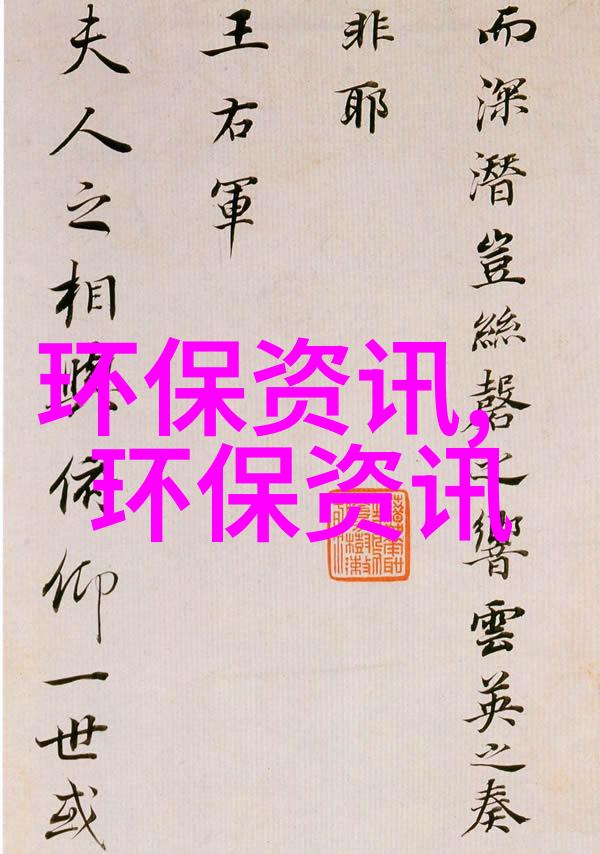 而深潛豈絲磬之響雲英之奏
非耶
王右軍
夫人之相與俯仰一世或
环保资讯,
环保资讯